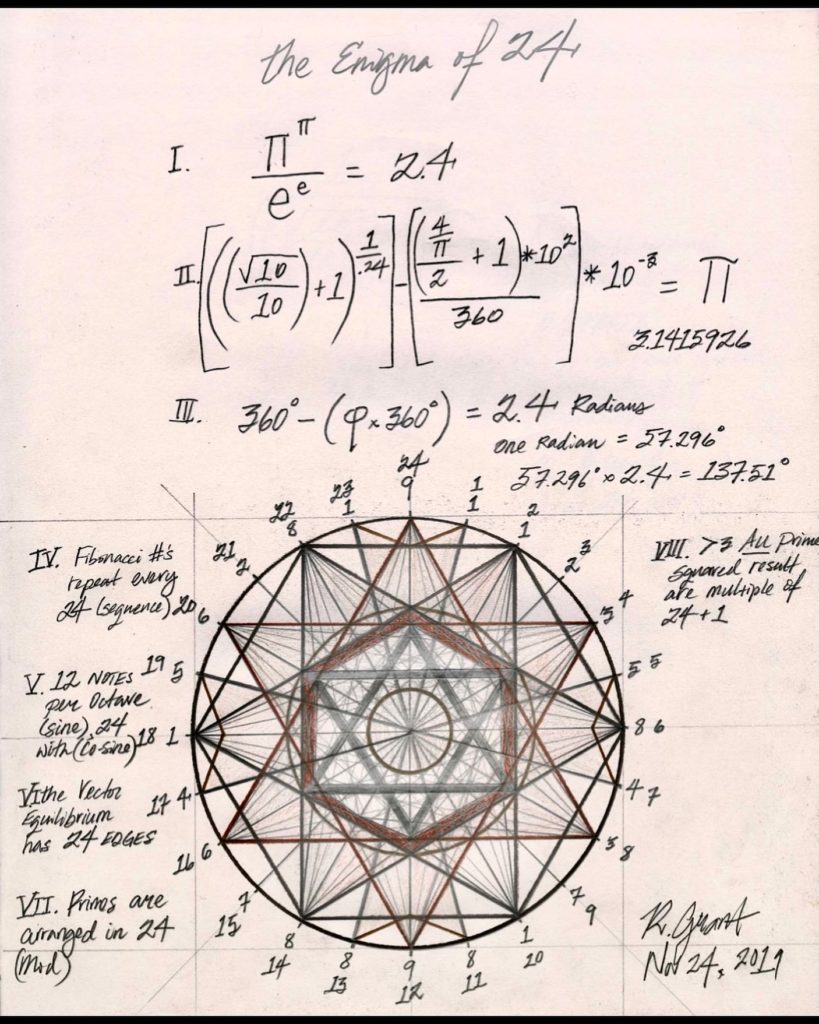 the Enigma of 24
I. π^π / e^e = 2.4
II. [((√10/10)+1)^(1/.24)] - [(((4/π)/2 + 1) * 10^2) / 360] * 10^-3 = π
3.1415926
III. 360° - (φ x 360°) = 2.4 Radians
one Radian = 57.296°
57.296° x 2.4 = 137.51°
24
9
1
1
2
1
3
2
4
3
5 5
8 6
4 7
3 8
7
9
1
10
8
11
9
12
8
13
8
14
7
15
16 6
17 4
18 1
19 5
20 6
21
2
22
8
23
1
IV. Fibonacci #'s
repeat every
24 (sequence)
V. 12 NOTES
per Octave
(sine), 24
with (Co-sine)
VI the Vector
Equilibrium
has 24 EDGES
VII. Primes are
arranged in 24
(Mod)
VIII. >3 ALL Prime
Squared result
are multiple of
24+1
R. Grant
Nov 24, 2019